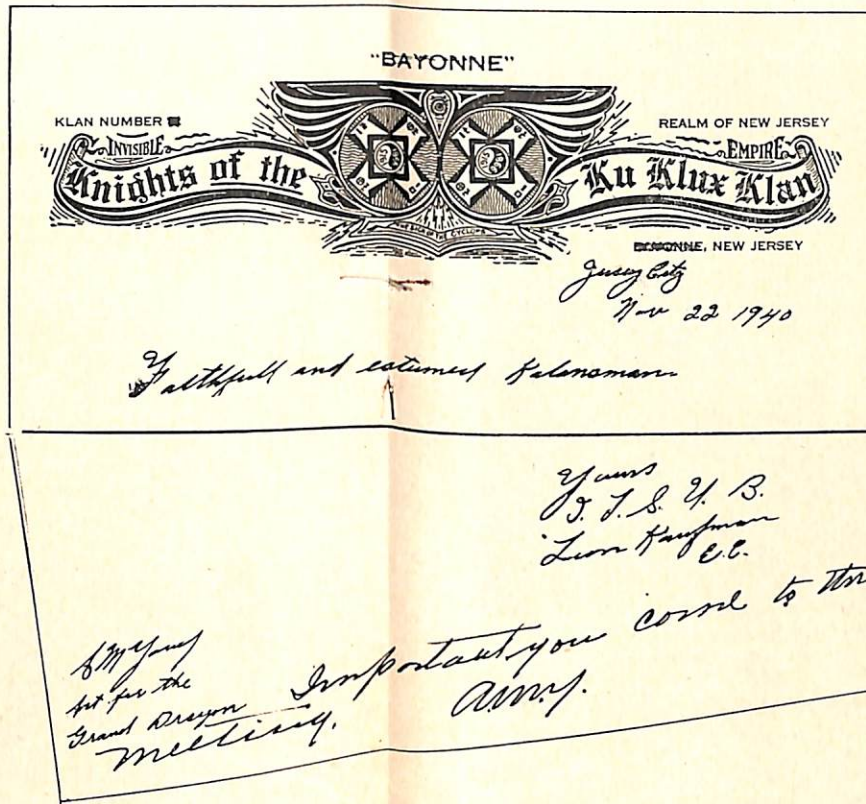 "BAYONNE"
KLAN NUMBER
REALM OF NEW JERSEY
INVISIBLE EMPIRE
Knights of the Ku Klux Klan
THE SIGN OF THE CYCLOPS
BAYONNE, NEW JERSEY
Jersey City
Nov 22 1940
Faithfull and estumed Kalansman
Yours
I. T. S. U. B.
Leon Kaufman
E.C.
Act for the
Grand Dragon
Important you come to the
meeting. AMY.